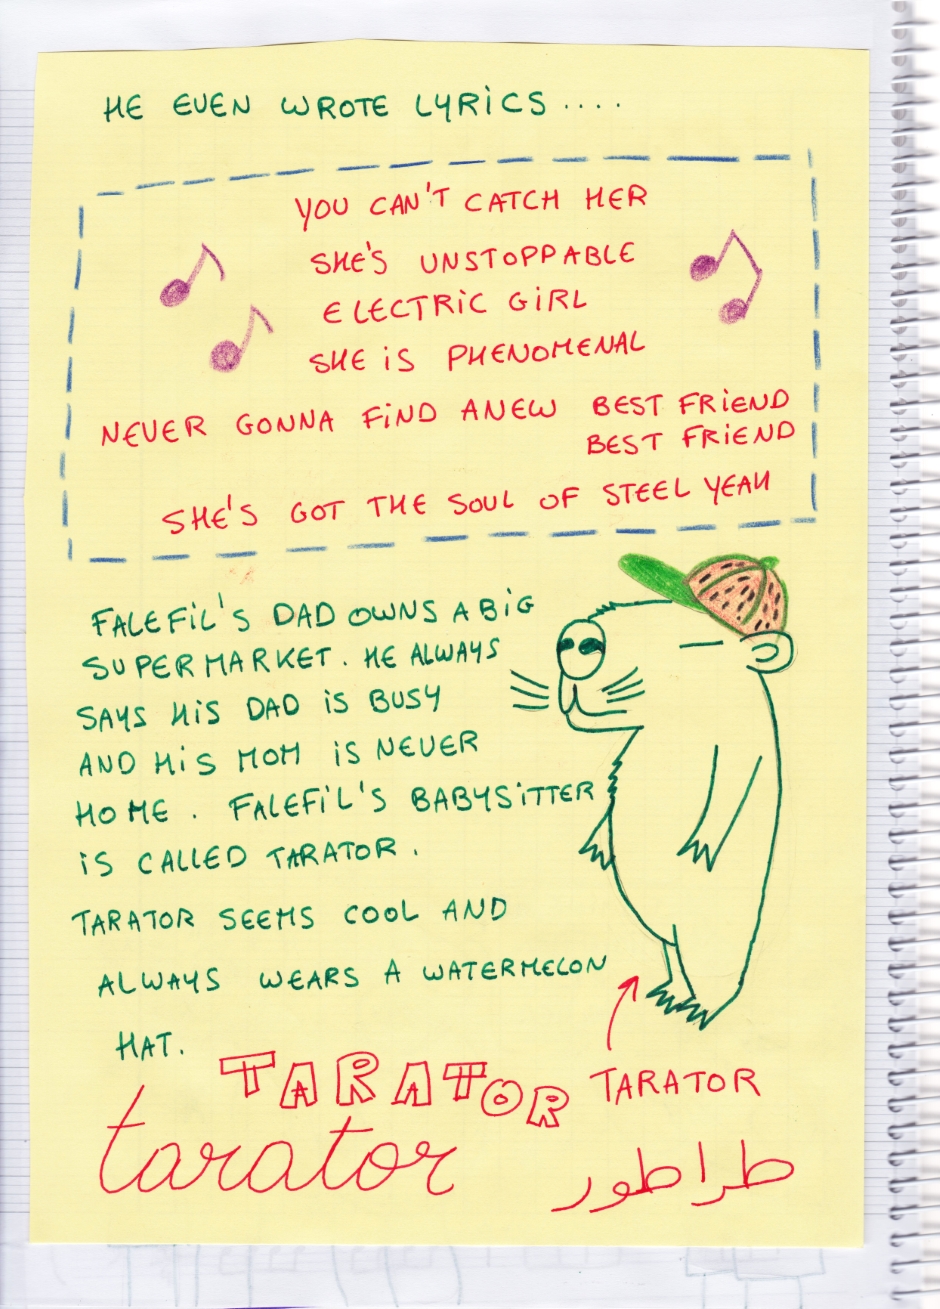 HE EVEN WROTE LYRICS ....
YOU CAN'T CATCH HER
SHE'S UNSTOPPABLE
ELECTRIC GIRL
SHE IS PHENOMENAL
NEVER GONNA FIND ANEW BEST FRIEND
BEST FRIEND
SHE'S GOT THE SOUL OF STEEL YEAH
FALEFIL'S DAD OWNS A BIG
SUPERMARKET. HE ALWAYS
SAYS HIS DAD IS BUSY
AND HIS MOM IS NEVER
HOME. FALEFIL'S BABYSITTER
IS CALLED TARATOR.
TARATOR SEEMS COOL AND
ALWAYS WEARS A WATERMELON
HAT.
TARATOR
TARATOR
tarator
طراطور